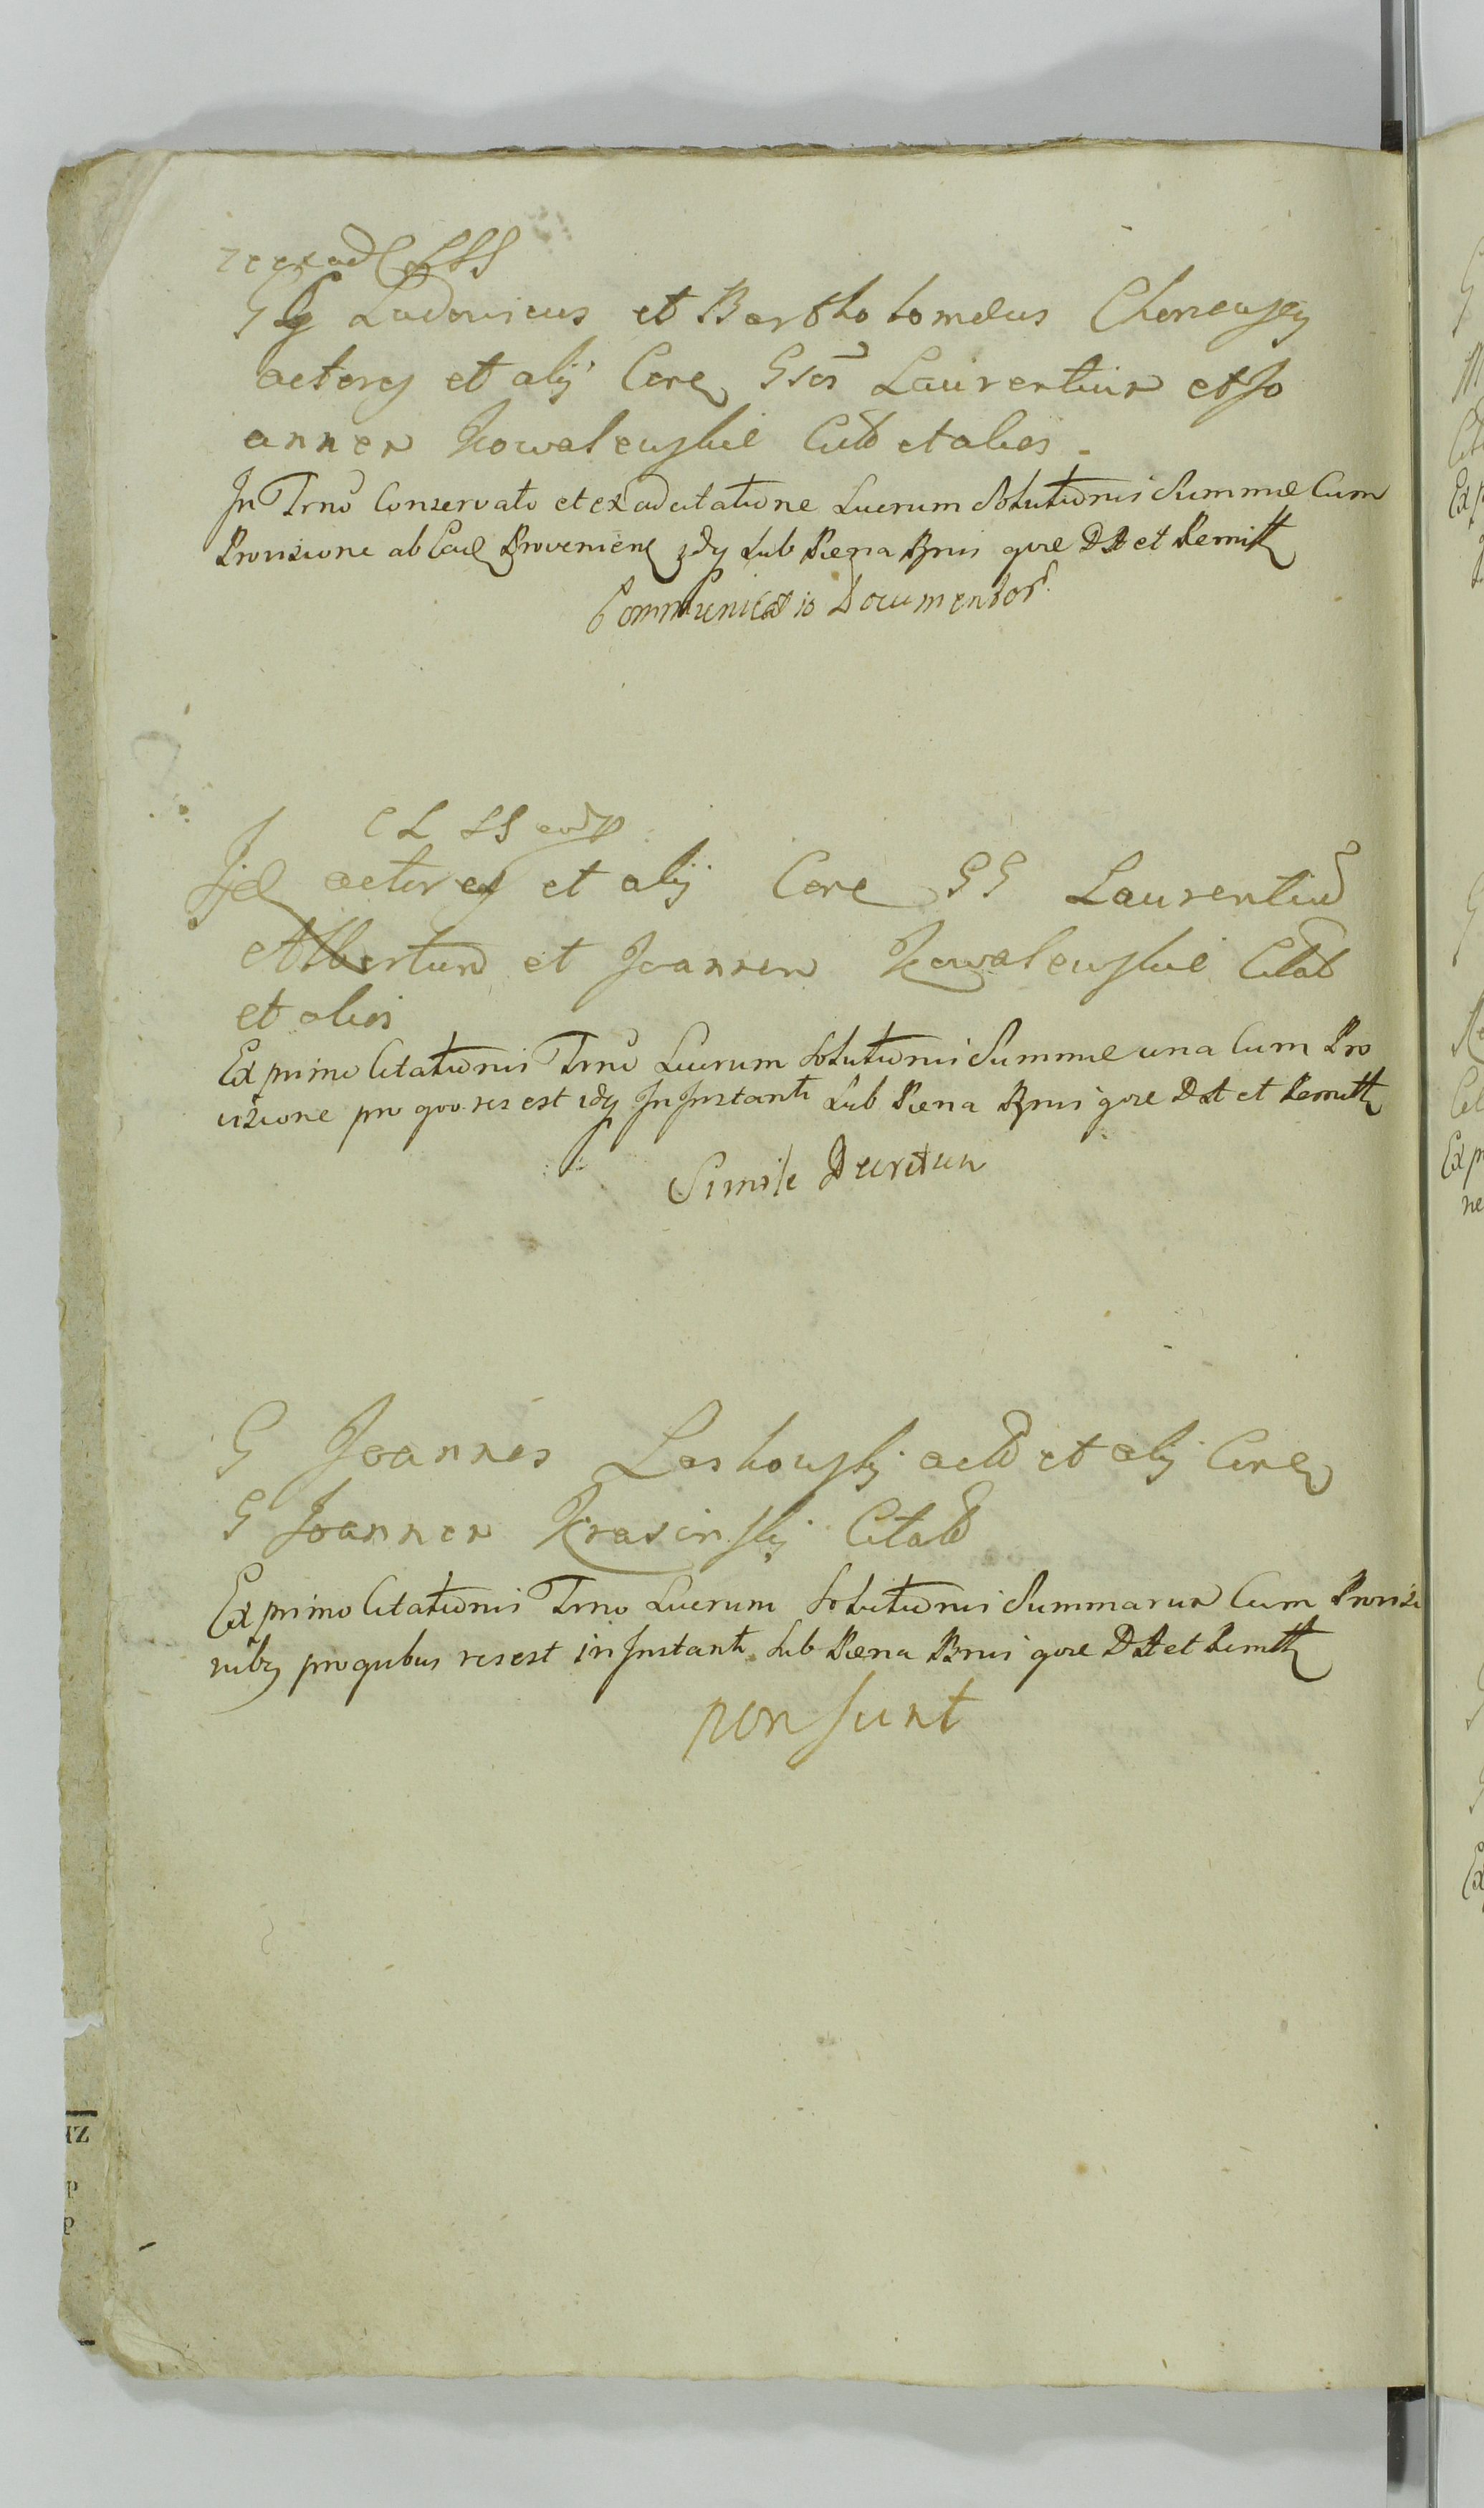 GG Ludovicus et Bartholomeus Chonewscy
actores et alij Cone Gsos Laurentium et Jo
annem Kowalewskie Citt et alios
In Trno Conservato et ex adcitatione Lucrum Solutionis Summae Cum
Provisione ab Eade Provenien sub Paena Bnis qore DD et Remitt
Communicatio Documentor
CL SS
actores et alij Cone GG Laurentium
Albertum et Joannem Kowalewskie Citat
et alios
Ex primo Citationis Trno Lucrum Solutionis Summae una Cum Pro
visione pro qoo res est In Instanti Sub Paena Bnis qore DD et Remitt
Simile Decretum
G Joannes Laskowskj act et alij Cone
G Joannem Krasinskj Citatt
Ex primo Citationis Trno Lucrum Solutionis Summarum Cum Provisi
nibq pro quibus res est in Instanti Sub Paena Bnis qore DD et Remitt
non sunt